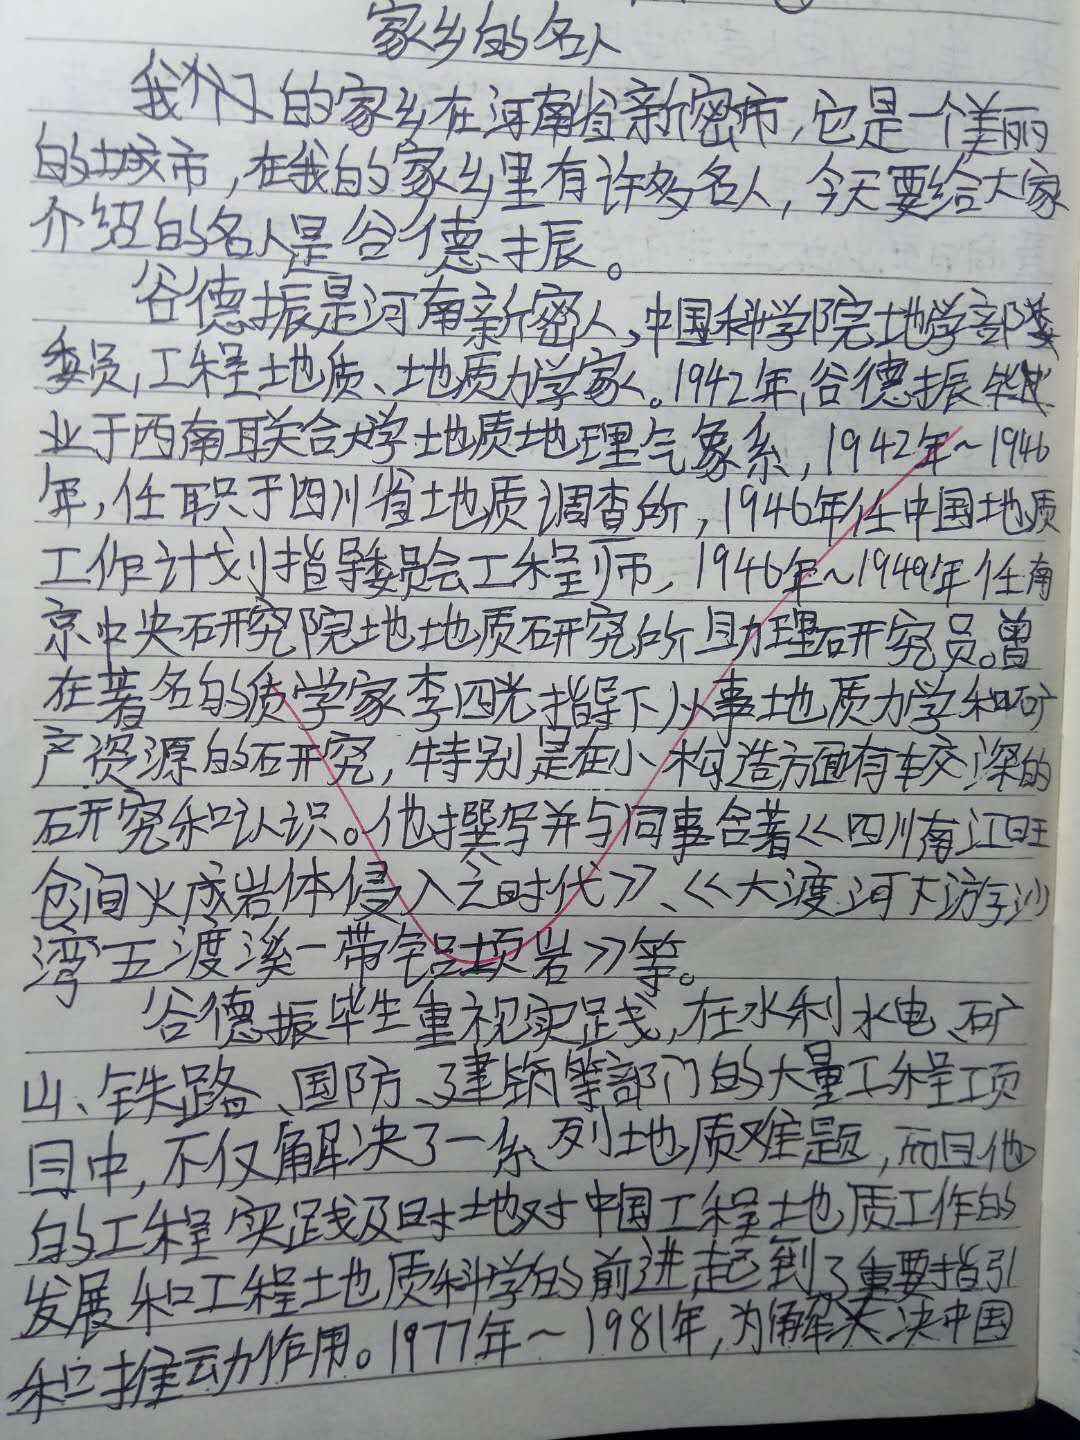 家乡的名人
我们的家乡在河南省新密市,它是一个美丽
的城市,在我的家乡里有许多名人,今天要给大家
介绍的名人是谷德振。
谷德振是河南新密人,中国科学院地学部
委员,工程地质、地质力学家。1942年,谷德振毕
业于西南联合大学地质地理气象系,1942年~1946
年,任职于四川省地质调查所,1946年任中国地质
工作计划指导委员会工程师,1946年~1949年任南
京中央研究院地地质研究所助理研究员。曾
在著名的质学家李四光指导下从事地质力学和矿
产资源的研究,特别是在小构造方面有较深的
研究和认识。他撰写并与同事合著《四川南江旺
仓间火成岩体侵入之时代》、《大渡河下游沙
湾五渡溪一带铝项岩》等。
谷德振毕生重视实践,在水利水电、矿
山、铁路、国防、建筑等部门的大量工程项
目中,不仅解决了一系列地质难题,而且他
的工程实践及时地对中国工程地质工作的
发展和工程地质科学的前进起到了重要指引
和推动作用。1977年~1981年,为解决中国